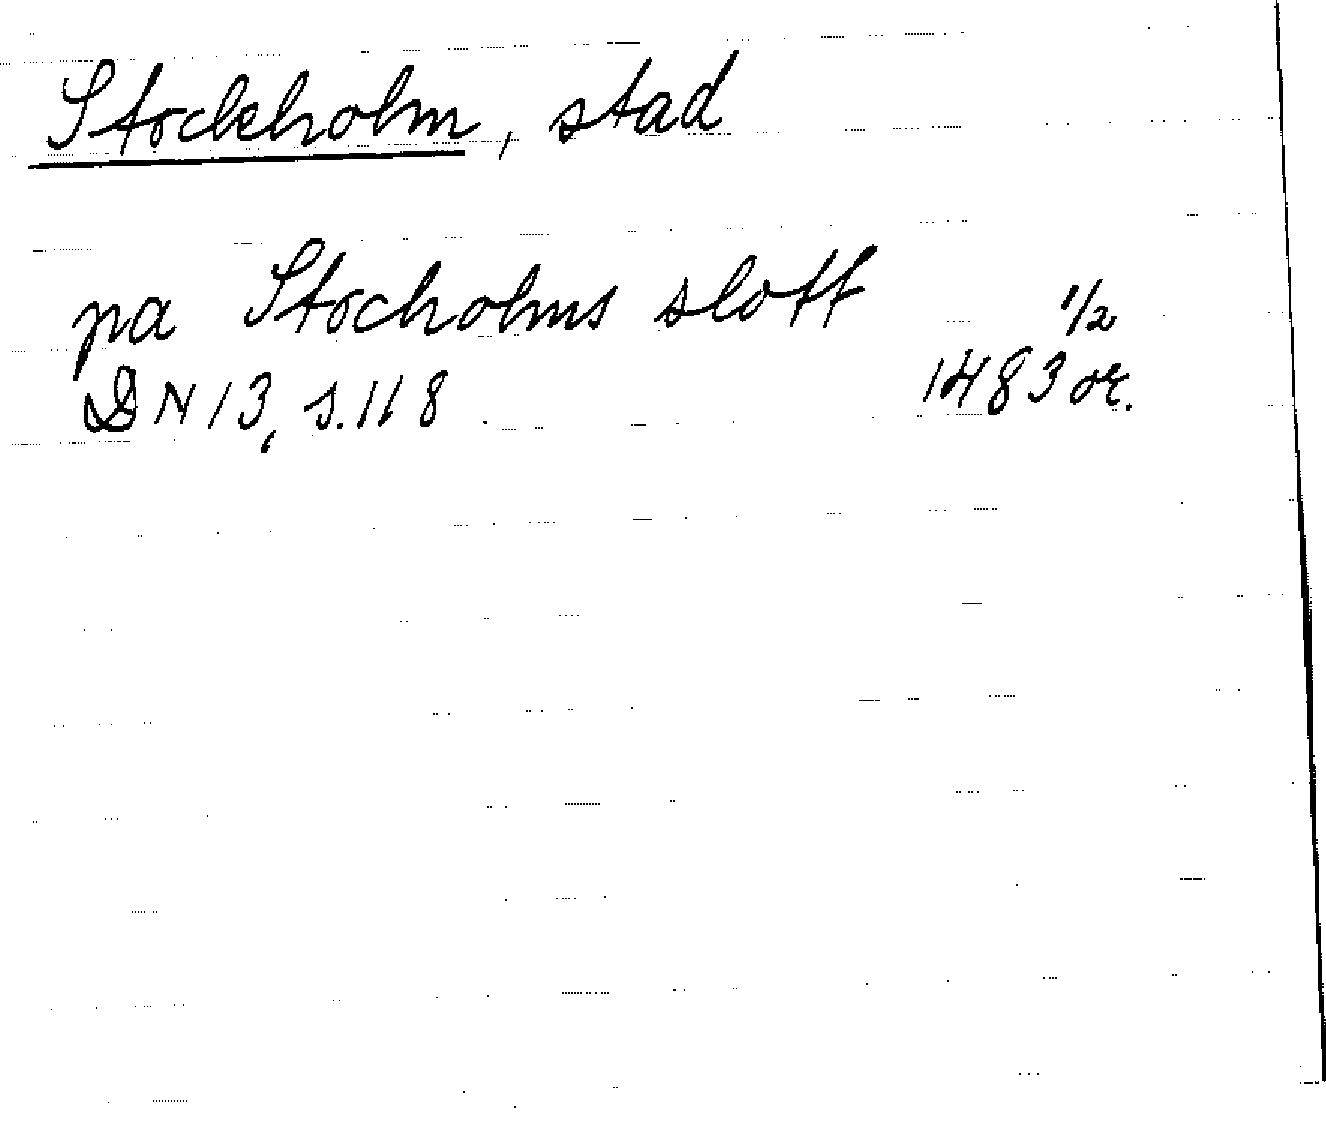 Stockholm, stad
pa Stocholms slott 1/2
DN 13, s. 118 1483 or.